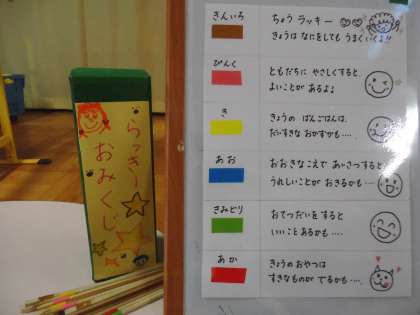 らっきー
おみくじ
きんいろ
ちょう ラッキー
きょうは なにをしても うまくいくよ!!
ぴんく
ともだちに やさしくすると、
よいことが あるよ♪
き
きょうの ばんごはんは、
だいすきな おかずかも‥‥.
あお
おおきなこえで あいさつすると
うれしいことが おきるかも‥‥.
きみどり
おてつだいを すると
いいこと あるかも‥‥.
あか
きょうの おやつは
すきなものが でるかも‥‥.